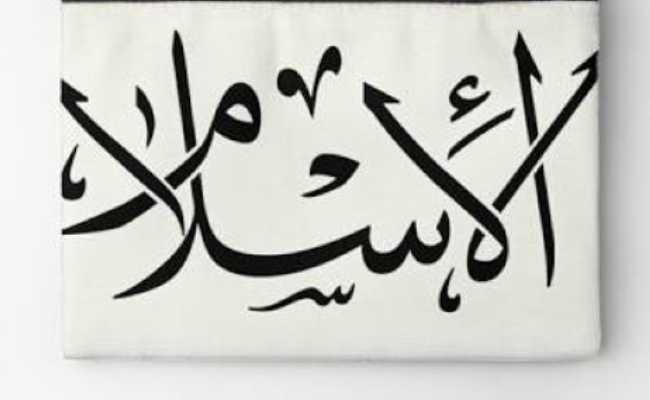 الإسلام